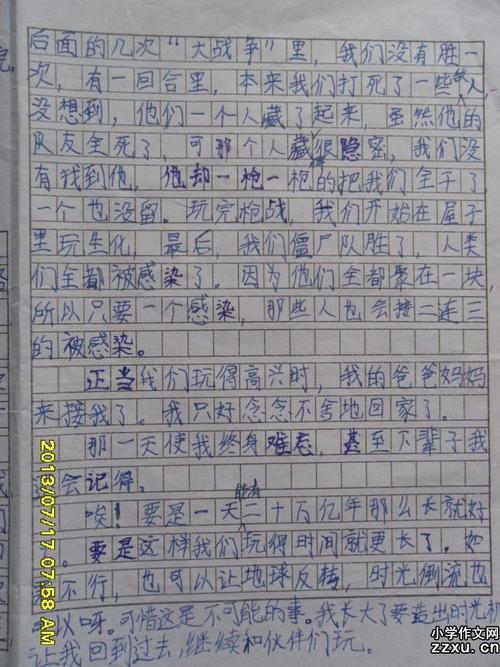 后面的几次“大战争”里，我们没有胜一
次，有一回合里，本来我们打死了一些敌人，
没想到，他们一个人藏了起来，虽然他的
队友全死了，可那个人藏得很隐密，我们没
有找到他，他却一枪一枪的把我们全干了
一个也没留。玩完枪战，我们开始在屋子
里玩生化，最后，我们僵尸队胜了，人类
们全都被感染了。因为他们全都聚在一块，
所以只要一个感染，那些人也会接二连三
的被感染。
正当我们玩得高兴时，我的爸爸妈妈
来接我了。我只好念念不舍地回家了。
那一天使我终身难忘，甚至下辈子我
会记得。
唉！要是一天能有二十万亿年那么长就好
。要是这样我们玩得时间就更长了。如
不行，也可以让地球反转，时光倒流也
可以呀。可惜这是不可能的事。我长大了要造出时光机
让我回到过去，继续和伙伴们玩。
2013/07/17 07:58 AM
小学作文网
zzxu.cn